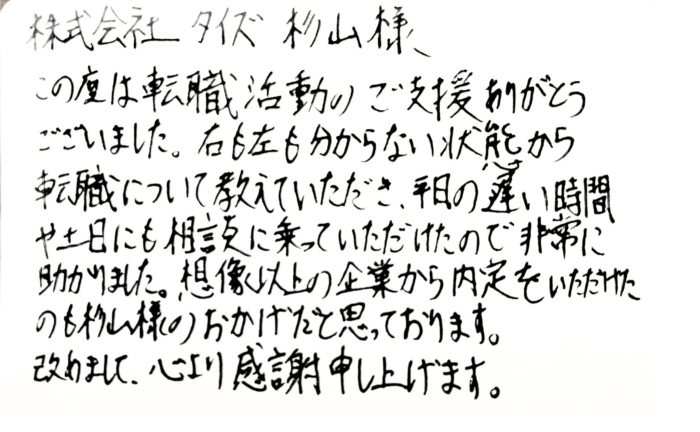 株式会社 タイズ 杉山様
この度は転職活動のご支援ありがとう
ございました。右も左も分からない状態から
転職について教えていただき、平日の遅い時間
や土日にも相談に乗っていただけたので非常に
助かりました。想像以上の企業から内定をいただけた
のも杉山様のおかげだと思っております。
改めまして、心より感謝申し上げます。